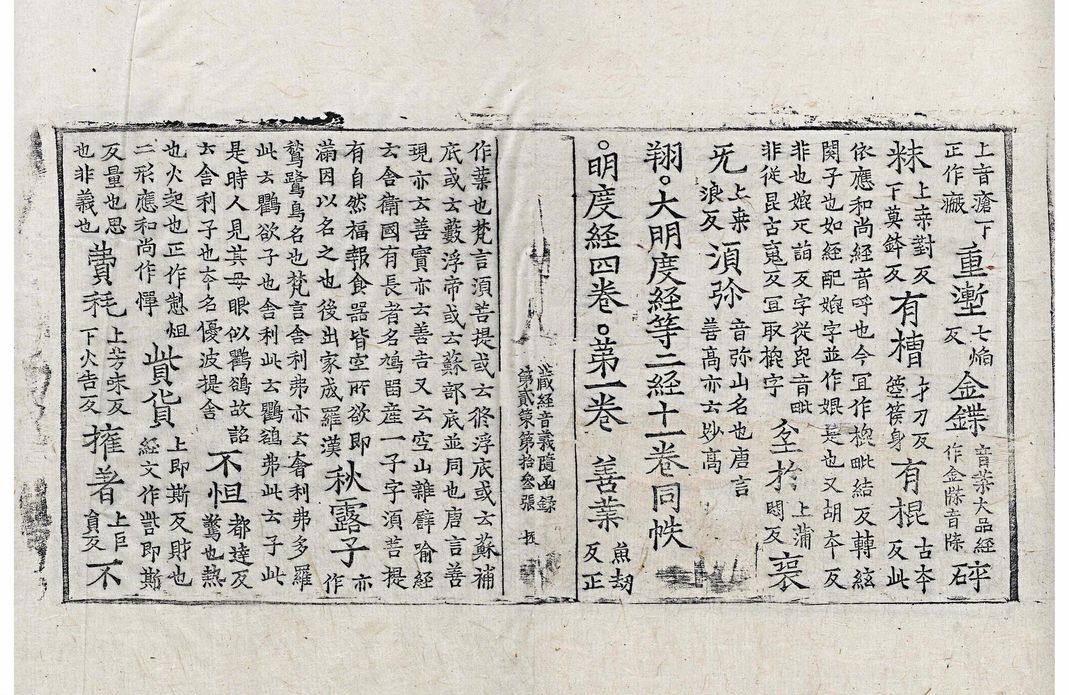 上音瘡下
正作瘢重漸七焰反金鍱音葉大品經作金牒音牒碎
秣上来對反下莫鉢反有槽才刀反箜篌身有棍古夲反此
依應和尚經音呼也今冝作㮰毗結反轉絃
関子也如經配㮰字並作㮰是也又胡夲反
非也㮰疋詣反字從毘音毗
非從昆古䰟反冝取㮰字坌扵上蒲悶反裒
旡上来浪反須弥音弥山名也唐言善高亦云妙高
翔。大明度経等二経十一卷同帙
。明度経四卷。第一卷 善葉魚劫反正
藏經音義隨函録
第貳第拾叁張
作葉也梵言須菩提或云修浮底或云蘇補
底或云藪浮帝或云蘇部底並同也唐言善
現亦云善實亦云善吉又云空山雜辟喻經
云舍衛國有長者名鳩留産一子字須菩提
有自然福報食器皆空所欲即
滿因以名之也後出家成羅漢秋露子亦作
鶖鷺鳥名也梵言舍利弗亦云奢利弗多羅
此云鸜欲子也舍利此云鸜鵒弗此云子此
是時人見其母眼似鸜鵒故詺
云舍利子也夲名優波提舍不怛都達反驚也熱
也火起也正作㥉怚
二形應和尚作憚呰貨上即斯反財也經文作訾即斯
反量也思
也非義也費耗上芳味反下火告反擁著上叵貪反不